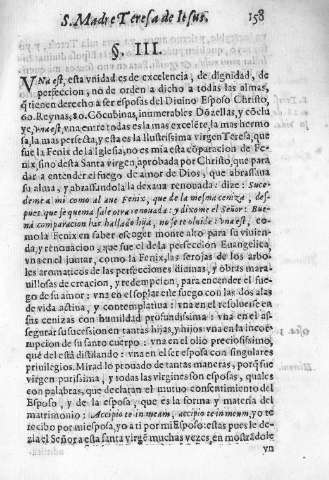 S. Madre Teresa de Iesus. 158
§. III.
VNa est, esta vnidad es de excelencia, de dignidad, de
perfeccion, no de orden a dicho a todas las almas,
q̃ tienen derecho a ser esposas del Diuino Esposo Christo,
60. Reynas, 80. Cõcubinas, inumerables Dõzellas, y cõclu
ye, vna est, vna entre todas es la mas excelẽte, la mas hermo
sa, la mas perfecta, y esta es la Ilustrissima virgen Teresa, que
fue la Fenix de la Iglesia, no es mia esta cõparacion de Fe-
nix, sino desta Santa virgen, aprobada por Christo, que para
dar a entender el fuego de amor de Dios, que abrassaua
su alma, y abrassandola la dexaua renouada: dize: Suce
deme a mi como al aue Fenix, que de la mesma ceniza, des-
pues que se quema sale otra renouada: y dixome el Señor: Bue
na comparacion has hallado hija, no se te oluide: vna est, co-
mo la Fenix en saber escoger monte alto para su viuien-
da, y renouacion, que fue el de la perfeccion Euangelica,
vna en el juntar, como la Fenix, las serojas de los arbo-
les aromaticos de las perfecciones diuinas, y obras mara-
uillosas de creacion, y redempcion, para encender el fue-
go de su amor: vna en el soplar este fuego con las dos alas
de vida actiua, y contemplatiua: vna en el resoluerse en
sus cenizas con humildad profundissima: vna en el as-
segurar su sucession en tantas hijas, y hijos: vna en la incor-
rupcion de su santo cuerpo: vna en el olio preciosissimo,
que del està distilando: vna en el ser esposa con singulares
priuilegios. Mirad lo prouado de tantas maneras, porq̃ fue
virgen purissima, y todas las virgines son esposas, quales
con palabras, que declaran el mutuo consentimiento del
Esposo, y de la esposa, que es la forma y materia del
matrimonio: Accipio te in meam, accipio te in meum, yo te
recibo por mi esposa, yo a ti por mi Esposo: estas pues le de-
zia el Señor a esta santa virgẽ muchas vezes, en mostrãdole
vn